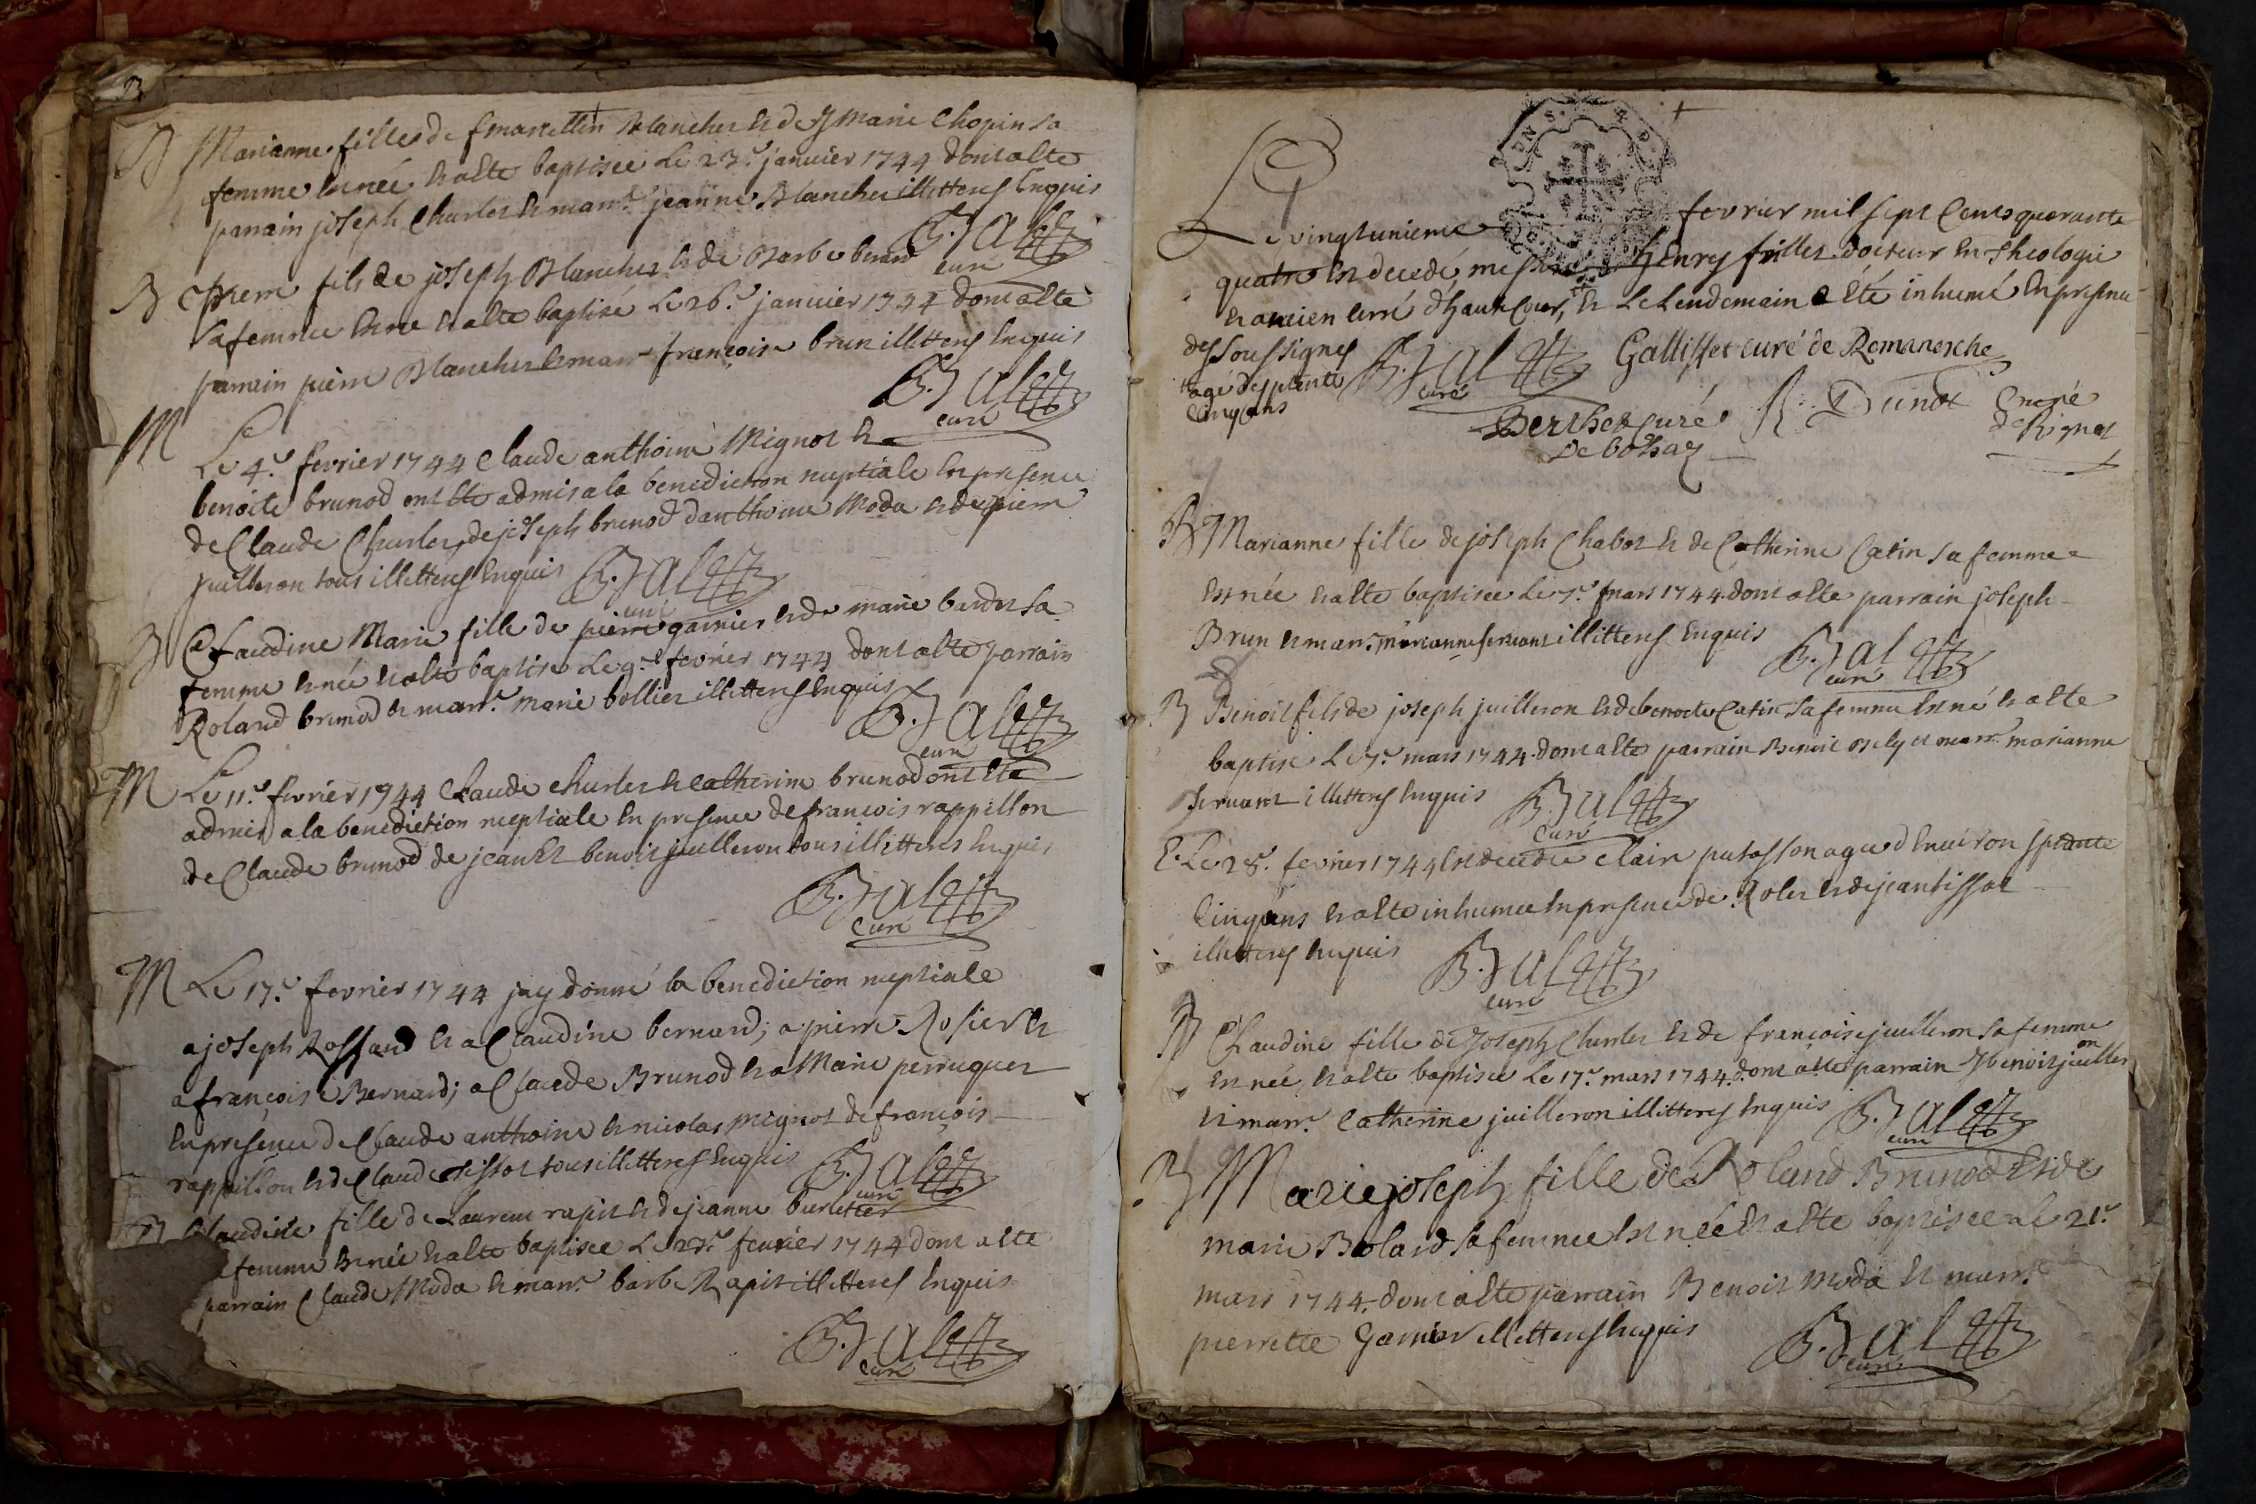 B Marianne fille de Marcellin Blancher et de Marie Chopin sa
femme est née et a été baptisée Le 23.e janvier 1744 dont acte
parrain joseph Charles et marr.e jeanne Blancher illitteres Enquis
curé
B Pierre fils de joseph Blancher et de Barbe benard
sa femme est né et a été baptisé Le 26.e janvier 1744 dont acte
parrain pierre Blancher et marr.e françoise brun illitteres Enquis
curé
M Le 4.e fevrier 1744 Claude anthoine Mignot et
benoite brunod ont été admis a la benediction nuptiale En presence
de Claude Charles, de joseph brunod d'anthoine Moda et de pierre
juilleron tous illitteres Enquis
curé
B Claudine Marie fille de pierre garnier et de marie bardet sa
femme est née et a été baptisée Le 9.e fevrier 1744 dont acte parrain
Roland brunod et marr.e marie bollier illitteres Enquis
curé
M Le 11.e fevrier 1744 Claude charles et catherine brunod ont été
admis a la benediction nuptiale En presence de francois rappillon
de Claude brunod de jean et benoit juilleron tous illitteres Enquis
curé
M Le 17.e fevrier 1744 jay donné la benediction nuptiale
a joseph Rossand et a Claudine bernard; a pierre Rosier et
a françoise Bernard; a Claude Brunod et a Marie perruquet
En presence de Claude anthoine et nicolas mignot de françois
rappillon et de Claude tissot tous illitteres Enquis
curé
B Claudine fille de Laurent rapit et de jeanne
femme est née et a été baptisée Le fevrier 1744 dont acte
parrain Claude Moda et marr.e barbe Rapit illitteres Enquis
curé
Le vingtunieme fevrier mil sept Cents quarante
quatre est decedé messire henry frilles docteur En theologie
et ancien curé d'hautecour, et Le Lendemain a été inhumé En presence
des soussignés
Gallisset curé de Romanesche
agé de septante
Cinq ans
curé
Berthet curé
de bohaz
Curé
de Rignat
B Marianne fille de joseph Chabot et de Catherine Catin sa femme
est née et a été baptisée Le 7.e mars 1744. dont acte parrain joseph
Brun et marr.e marianne servant illitteres Enquis
curé
B Benoit fils de joseph juilleron et de benoite Catin sa femme est né et a été
baptisé Le 7.e mars 1744. dont acte parrain Benoit et marr.e marianne
servant illitteres Enquis
curé
E. Le 28.e fevrier 1744 est decedée claire putosson agée d'Environ septante
Cinq ans et a été inhumée En presence de Rolet et de jean tissot
illitteres Enquis
curé
B Claudine fille de Joseph Charles et de françoise juilleron sa femme
est née et a été baptisée Le 17.e mars 1744. dont acte parrain benoit juilleron
et marr.e Catherine juilleron illitteres Enquis
curé
B Marie joseph fille de Roland Brunod et de
marie Bolard sa femme est née et a été baptisée Le 21.e
mars 1744. dont acte parrain Benoit Moda et marr.e
pierrette Garnier illitteres Enquis
curé